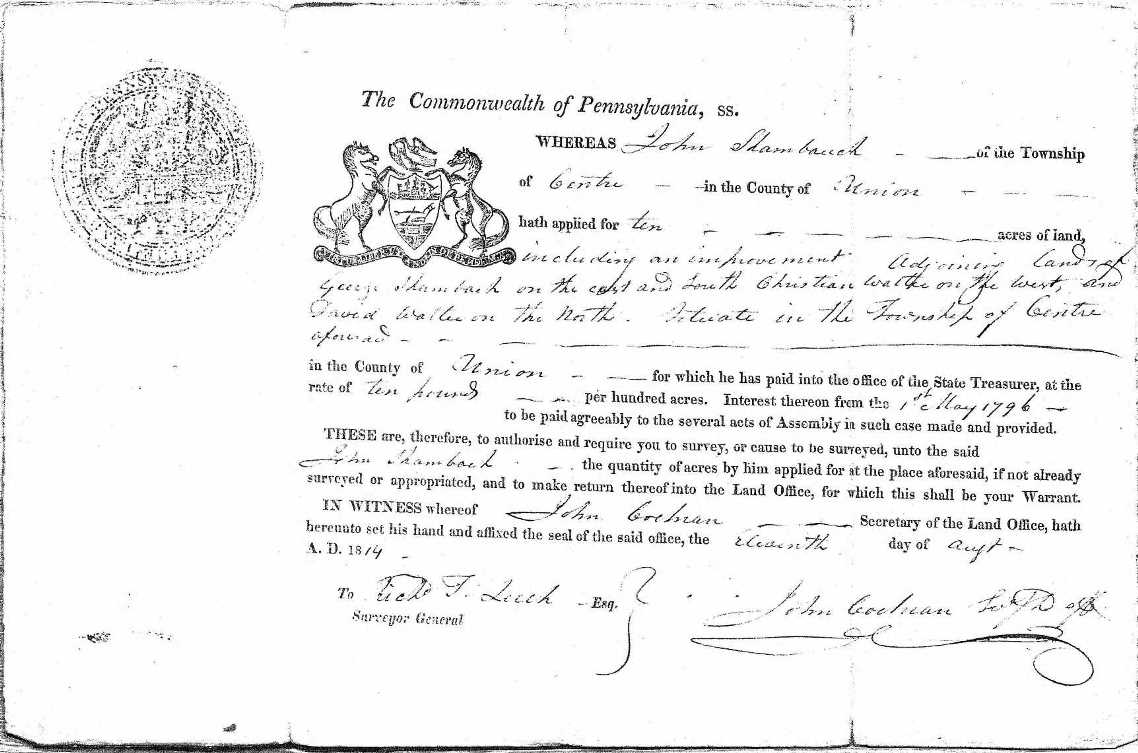 The Commonwealth of Pennsylvania, ss.
WHEREAS John Shambauch of the Township
of Centre in the County of Union
hath applied for ten acres of land,
including an improvement Adjoining lands of
George Shambach on the east and South Christian Walter on the West, and
David Walter on the North. Situate in the Township of Centre
aforesaid
in the County of Union for which he has paid into the office of the State Treasurer, at the
rate of ten pounds per hundred acres. Interest thereon from the 1st May 1796
to be paid agreeably to the several acts of Assembly in such case made and provided.
THESE are, therefore, to authorise and require you to survey, or cause to be surveyed, unto the said
John Shambach the quantity of acres by him applied for at the place aforesaid, if not already
surveyed or appropriated, and to make return thereof into the Land Office, for which this shall be your Warrant.
IN WITNESS whereof John Cochran Secretary of the Land Office, hath
hereunto set his hand and affixed the seal of the said office, the eleventh day of Augt
A. D. 1814
To Richd T. Leech Esq.
Surveyor General
John Cochran